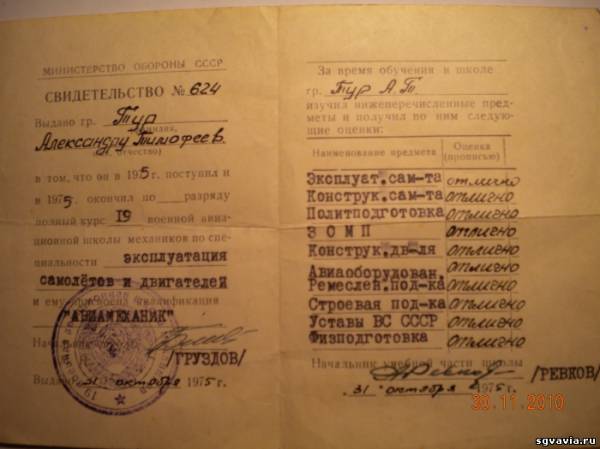 МИНИСТЕРСТВО ОБОРОНЫ СССР
СВИДЕТЕЛЬСТВО № 624
Выдано гр. Тур
Александру Тимофеев.
отчество)
в том, что он в 1975г. поступил и
в 1975 окончил по разряду
полный курс 19 военной авиа-
ционной школы механиков по спе-
циальности эксплуатация
самолётов и двигателей
и ему присвоена квалификация
"АВИАМЕХАНИК"
Начальник
/ГРУЗДОВ/
Выдано 31 октября 1975г
За время обучения в школе
гр. Тур А.Т.
изучил нижеперечисленные пред-
меты и получил по ним следую-
щие оценки:
Наименование предмета Оценка (прописью)
Эксплуат.сам-та отлично
Конструк.сам-та отлично
Политподготовка отлично
ЗОМП отлично
Конструк.дв-ля отлично
Авиаоборудован. отлично
Ремеслен.под-ка отлично
Строевая под-ка отлично
Уставы ВС СССР отлично
Физподготовка отлично
Начальник учебной части школы
/РЕВКОВ/
31 октября 1975г.
30.11.2010
sgvavia.ru